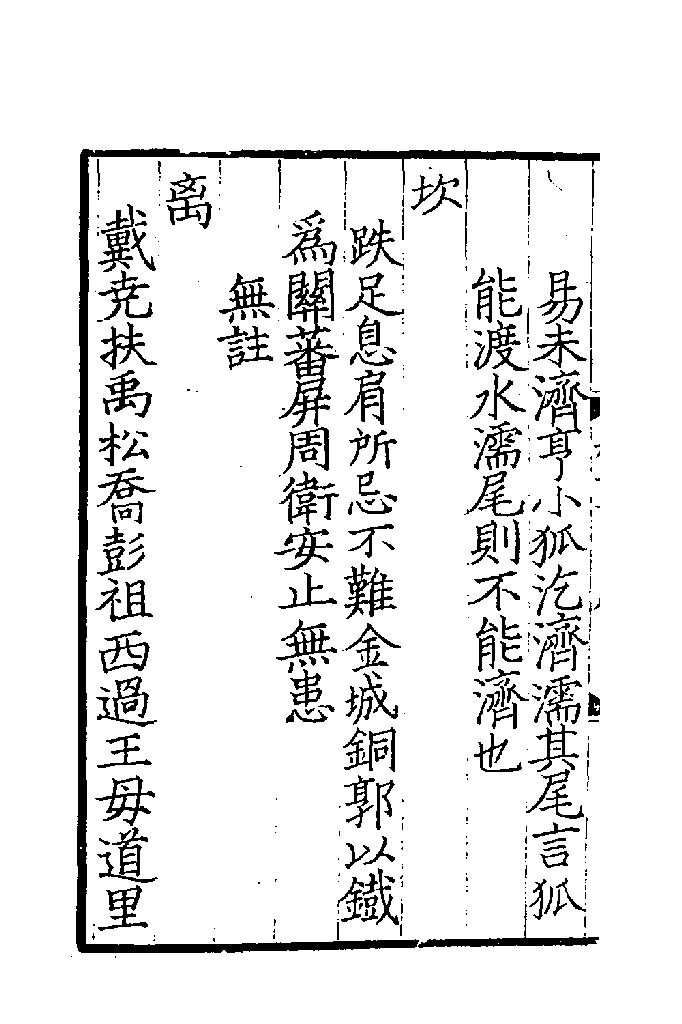 易未濟亨小狐汔濟濡其尾言狐
能渡水濡尾則不能濟也
坎
跌足息肩所忌不難金城銅郭以鐵
為關蕃屏周衛安止無患
無註
离
戴尭扶禹松喬彭祖西過王母道里